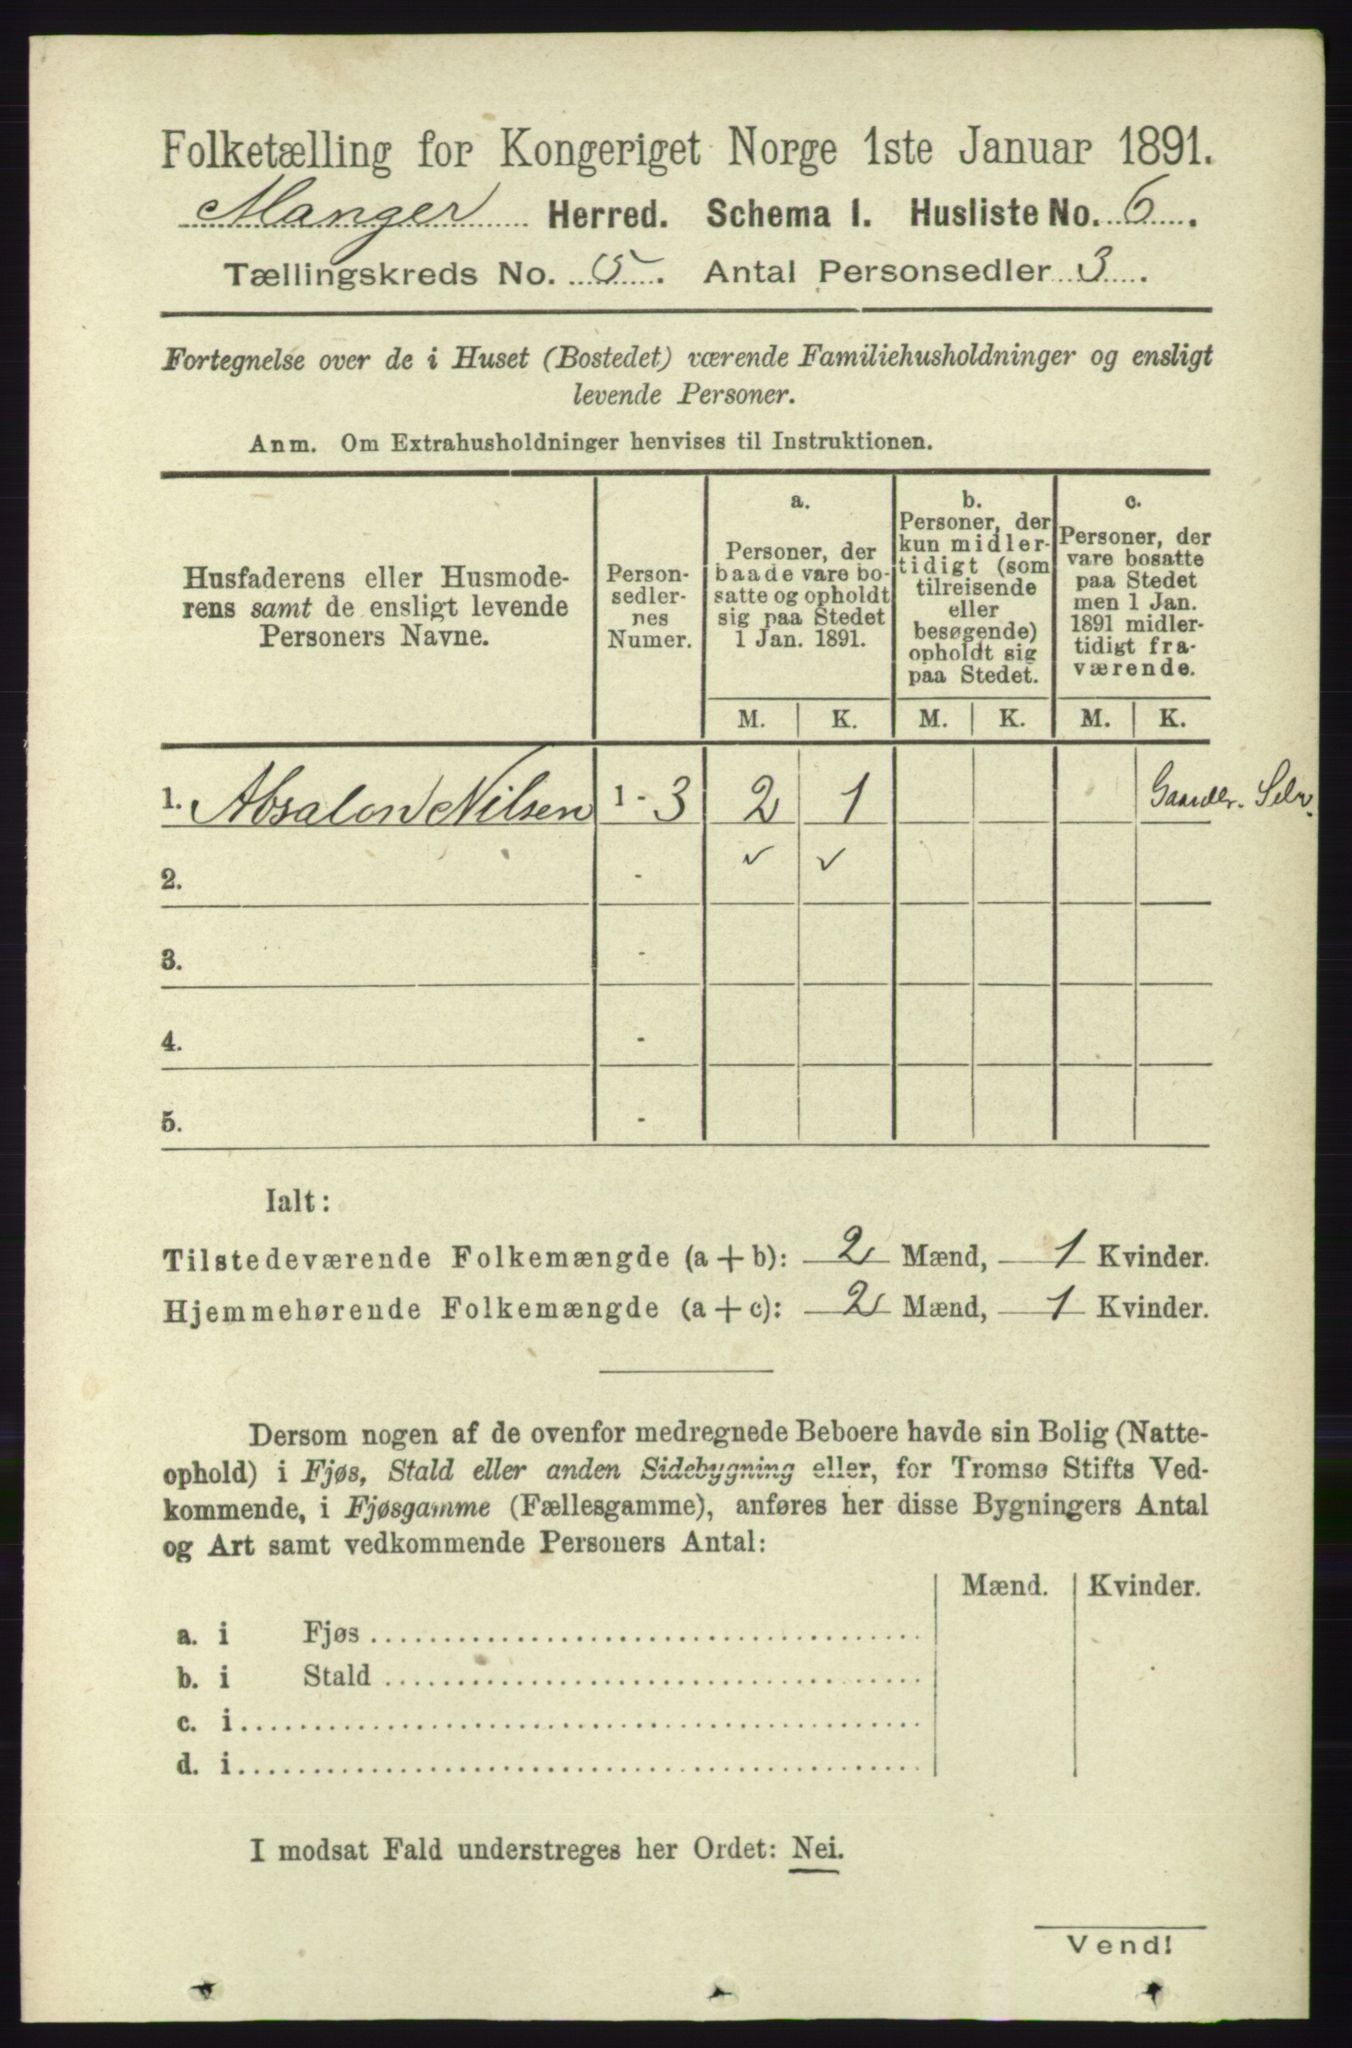 Folketælling for Kongeriget Norge 1ste Januar 1891.
Manger Herred. Schema 1. Husliste No. 6.
Tællingskreds No. 5. Antal Personsedler 3.
Fortegnelse over de i Huset (Bostedet) værende Familiehusholdninger og ensligt
levende Personer.
Anm. Om Extrahusholdninger henvises til Instruktionen.
Husfaderens eller Husmode-
rens samt de ensligt levende
Personers Navne.
Person-
sedler-
nes
Numer.
a.
Personer, der
baade vare bo-
satte og opholdt
sig paa Stedet
1 Jan. 1891.
b.
Personer, der
kun midler-
tidigt (som
tilreisende
eller
besøgende)
opholdt sig
paa Stedet.
c.
Personer, der
vare bosatte
paa Stedet
men 1 Jan.
1891 midler-
tidigt fra-
værende.
M. K. M. K. M. K.
1. Absalon Nilsen 1 - 3 2 1 Gaardbr. Selv.
✓ ✓
2. -
3. -
4. -
5. -
Ialt:
Tilstedeværende Folkemængde (a + b): 2 Mænd, 1 Kvinder.
Hjemmehørende Folkemængde (a + c): 2 Mænd, 1 Kvinder.
Dersom nogen af de ovenfor medregnede Beboere havde sin Bolig (Natte-
ophold) i Fjøs, Stald eller anden Sidebygning eller, for Tromsø Stifts Ved-
kommende, i Fjøsgamme (Fællesgamme), anføres her disse Bygningers Antal
og Art samt vedkommende Personers Antal:
Mænd. Kvinder.
a. i Fjøs
b. i Stald
c. i
d. i
I modsat Fald understreges her Ordet: Nei.
Vend!